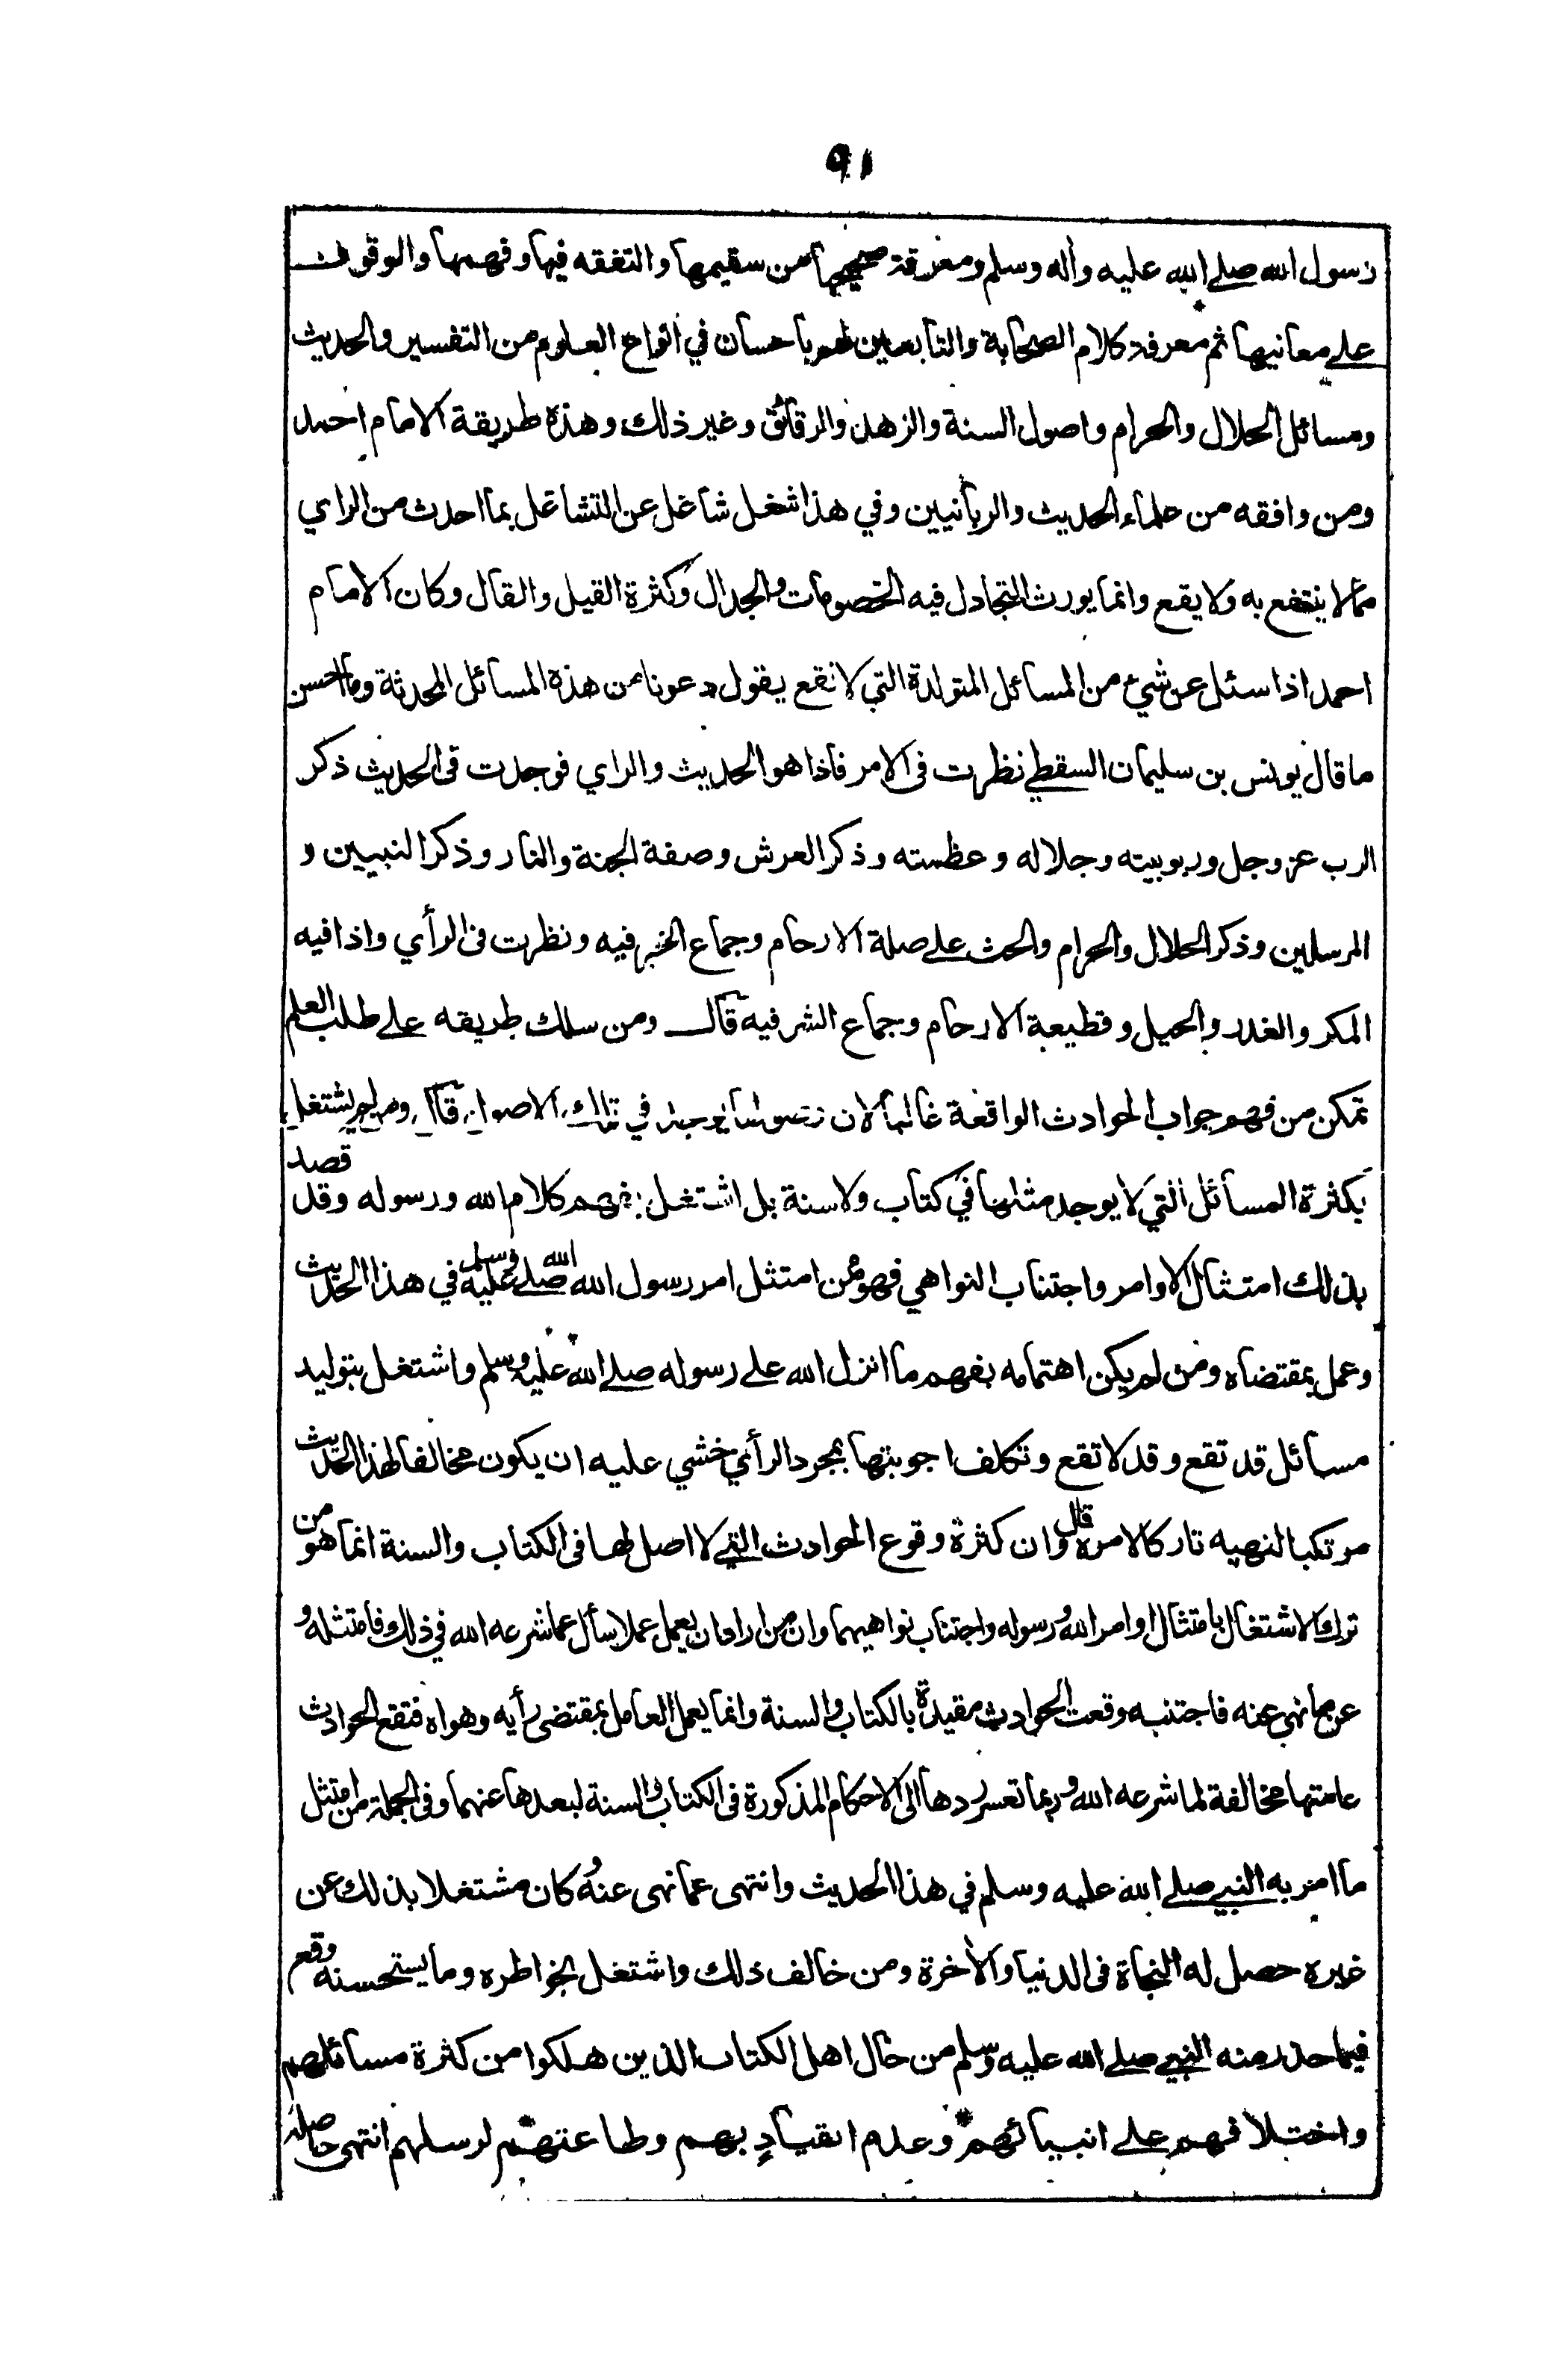 ٩١
رسول الله صلے الله عليه وأله وسلم ومعرفة صحيحها من سقيمها والتفقه فيها وفهمها والوقوف
علے معانيها ثم معرفة كلام الصحابة والتابعين لهم باحسان في انواع العلوم من التفسير والحديث
ومسائل الحلال والحرام واصول السنة والزهد والرقائق وغير ذلك وهذه طريقة الامام احمد
ومن وافقه من علماء الحديث والربانيين وفي هذا شغل شاغل عن التشاغل بما احدث من الراي
مما لا ينتفع به ولا يقع وانما يورث التجادل فيه الخصومات والجدال وكثرة القيل والقال وكان الامام
احمد اذا سئل عن شيء من المسائل المتولدة التي لا تقع يقول دعونا من هذه المسائل المحدثة وما احسن
ما قال يونس بن سليمان السقطي نظرت في الامر فاذا هو الحديث والراي فوجدت في الحديث ذكر
الرب عز وجل وربوبيته وجلاله وعظمته وذكر العرش وصفة الجنة والنار وذكر النبيين و
المرسلين وذكر الحلال والحرام والحث علے صلة الارحام وجماع الخير فيه ونظرت في الرأي واذا فيه
المكر والغدر والحيل وقطيعة الارحام وجماع الشر فيه قال ومن سلك طريقه علے طلب العلم
تمكن من فهم جواب الحوادث الواقعة غالبا لان يوجد في تلك الاصول قال ومن لم يشتغل
بكثرة المسائل التي لا يوجد مثلها في كتاب ولا سنة بل اشتغل بفهم كلام الله ورسوله وقد قصد
بذلك امتثال الاوامر واجتناب النواهي فهو ممن امتثل امر رسول الله صلے الله عليه وسلم في هذا الحديث
وعمل بمقتضاه ومن لم يكن اهتمامه بفهم ما انزل الله علے رسوله صلے الله عليه وسلم واشتغل بتوليد
مسائل قد تقع وقد لا تقع وتكلف اجوبتها بمجرد الرأي خشي عليه ان يكون مخالفا لهذا الحديث
مرتكبا لنهيه تاركا لامره قال وان كثرة وقوع الحوادث التي لا اصل لها في الكتاب والسنة انما هو من
ترك الاشتغال بامتثال اوامر الله ورسوله واجتناب نواهيهما وان من اراد ان يعمل عملا سأل عما شرعه الله في ذلك فامتثله و
عن ما نهى عنه فاجتنبه وقعت الحوادث مقيدة بالكتاب والسنة وانما يعمل العامل بمقتضى رأيه وهواه فتقع الحوادث
عامتها مخالفة لما شرعه الله وربما تعسر ردها الى الاحكام المذكورة في الكتاب والسنة لبعدها عنهما وفي الجملة من امتثل
ما امر به النبي صلے الله عليه وسلم في هذا الحديث وانتهى عما نهى عنه وكان مشتغلا بذلك عن
غيره حصل له النجاة في الدنيا والأخرة ومن خالف ذلك واشتغل بخواطره وما يستحسنه وقع
فيما حذر منه النبي صلے الله عليه وسلم من حال اهل الكتاب الذين هلكوا من كثرة مسائلهم
واختلافهم علے انبيائهم وعدم انقيادٍ بهم وطاعتهم لرسلهم انتهى حاصله